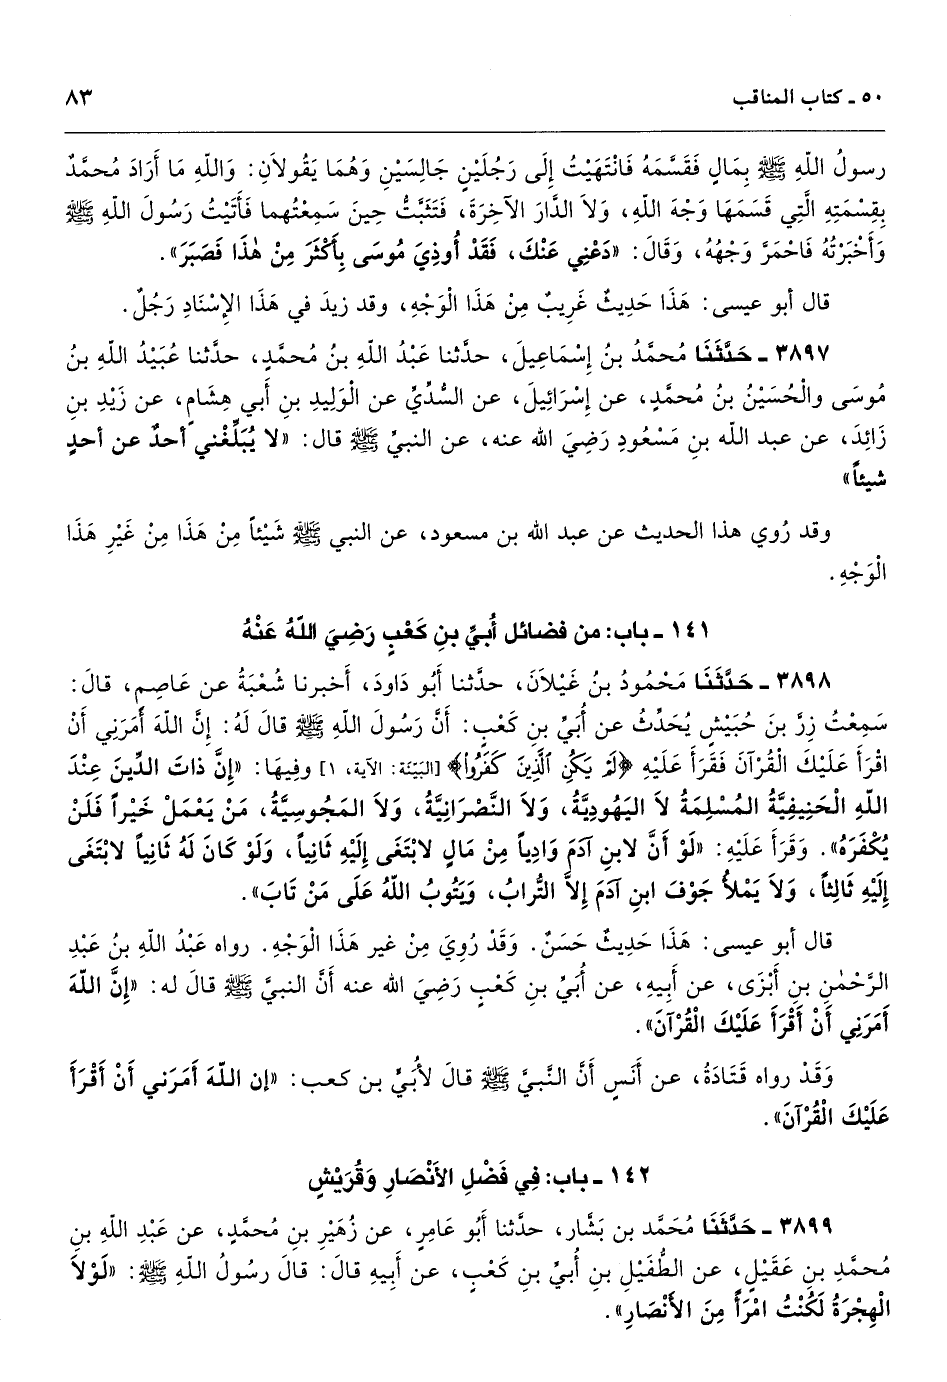 ٥٠ ـ كتاب المناقب ٨٣
رسولُ اللهِ ﷺ بِمَالٍ فَقَسَّمَهُ فَانْتَهَيْتُ إِلَى رَجُلَيْنِ جَالِسَيْنِ وَهُمَا يَقُولاَنِ: وَاللهِ مَا أَرَادَ مُحمَّدٌ
بِقِسْمَتِهِ الَّتِي قَسَمَهَا وَجْهَ اللهِ، وَلاَ الدَّارَ الآخِرَةَ، فَتَثَبَّتُّ حِينَ سَمِعْتُهما فَأَتَيْتُ رَسُولَ اللهِ ﷺ
وَأَخْبَرْتُهُ فَاحْمَرَّ وَجْهُهُ، وَقَالَ: «دَعْنِي عَنْكَ، فَقَدْ أُوذِيَ مُوسَى بِأَكْثَرَ مِنْ هٰذَا فَصَبَرَ».
قال أبو عيسى: هَذَا حَدِيثٌ غَرِيبٌ مِنْ هَذَا الْوَجْهِ، وقد زيدَ في هَذَا الإِسْنَادِ رَجُلٌ.
٣٨٩٧ ـ حَدَّثَنَا مُحمَّدُ بنُ إِسْمَاعِيلَ، حدَّثنا عَبْدُ اللهِ بنُ مُحمدٍ، حدَّثنا عُبَيْدُ اللهِ بنُ
مُوسَى والْحُسَيْنُ بنُ مُحمَّدٍ، عن إِسْرَائِيلَ، عن السُّدِّيِّ عن الْوَلِيدِ بنِ أَبي هِشَامٍ، عن زَيْدِ بنِ
زَائِدَ، عن عبد الله بنِ مَسْعُودٍ رَضِيَ الله عنه، عن النبيِّ ﷺ قال: «لا يُبَلِّغْني أحدٌ عن أحدٍ
شيئاً»
وقد رُوي هذا الحديث عن عبد الله بن مسعود، عن النبي ﷺ شَيْئاً مِنْ هَذَا مِنْ غَيْرِ هَذَا
الْوَجْهِ.
١٤١ ـ باب: من فضائل أُبيِّ بنِ كَعْبٍ رَضِيَ اللهُ عَنْهُ
٣٨٩٨ ـ حَدَّثَنَا مَحْمُودُ بنُ غَيْلاَنَ، حدَّثنا أَبُو دَاودَ، أَخبرنا شُعْبَةُ عن عَاصِمٍ، قالَ:
سَمِعْتُ زِرَّ بنَ حُبَيْشٍ يُحَدِّثُ عن أُبَيِّ بنِ كَعْبٍ: أَنَّ رَسُولَ اللهِ ﷺ قالَ لَهُ: إِنَّ اللهَ أَمَرَنِي أَنْ
اقْرَأَ عَلَيْكَ الْقُرْآنَ فَقَرَأَ عَلَيْهِ ﴿لَمْ يَكُنِ الَّذِينَ كَفَرُوا﴾ [البَيّنَة: الآية، ١] وفِيهَا: «إِنَّ ذَاتَ الدِّينِ عِنْدَ
اللهِ الْحَنِيفِيَّةُ المُسْلِمَةُ لاَ اليَهُودِيَّةُ، وَلاَ النَّصْرَانِيَّةُ، وَلاَ المَجُوسِيَّةُ، مَنْ يَعْمَلْ خَيْراً فَلَنْ
يُكْفَرَهُ». وَقَرَأَ عَلَيْهِ: «لَوْ أَنَّ لابنِ آدَمَ وَادِياً مِنْ مَالٍ لابْتَغَى إِلَيْهِ ثَانِياً، وَلَوْ كَانَ لَهُ ثَانِياً لابْتَغَى
إِلَيْهِ ثَالِثاً، وَلاَ يَمْلأُ جَوْفَ ابنِ آدَمَ إِلاَّ التُّرابُ، وَيَتُوبُ اللهُ عَلَى مَنْ تَابَ».
قال أبو عيسى: هَذَا حَدِيثٌ حَسَنٌ. وَقَدْ رُوِيَ مِنْ غير هَذَا الْوَجْهِ. رواه عَبْدُ اللهِ بنُ عَبْدِ
الرَّحْمٰنِ بنِ أَبْزَى، عن أَبِيهِ، عن أُبَيِّ بنِ كَعْبٍ رَضِيَ الله عنه أَنَّ النبيَّ ﷺ قالَ له: «إِنَّ اللهَ
أَمَرَنِي أَنْ أَقْرَأَ عَلَيْكَ الْقُرْآنَ».
وَقَدْ رواه قَتَادَةُ، عن أَنَسٍ أَنَّ النَّبيَّ ﷺ قالَ لأُبيِّ بن كعب: «إن اللهَ أمَرَني أَنْ أَقْرَأَ
عَلَيْكَ الْقُرْآنَ».
١٤٢ ـ باب: فِي فَضْلِ الأَنْصَارِ وَقُرَيْشٍ
٣٨٩٩ ـ حَدَّثَنَا مُحَمَّد بن بَشَّار، حدَّثنا أَبُو عَامِرٍ، عن زُهَيْرِ بنِ مُحمَّدٍ، عن عَبْدِ اللهِ بنِ
مُحمَّدِ بنِ عَقِيْلٍ، عن الطُّفَيْلِ بنِ أُبيِّ بنِ كَعْبٍ، عن أَبِيهِ قالَ: قالَ رسُولُ اللهِ ﷺ: «لَوْلاَ
الْهِجْرَةُ لَكُنْتُ امْرَأً مِنَ الأَنْصَارِ».